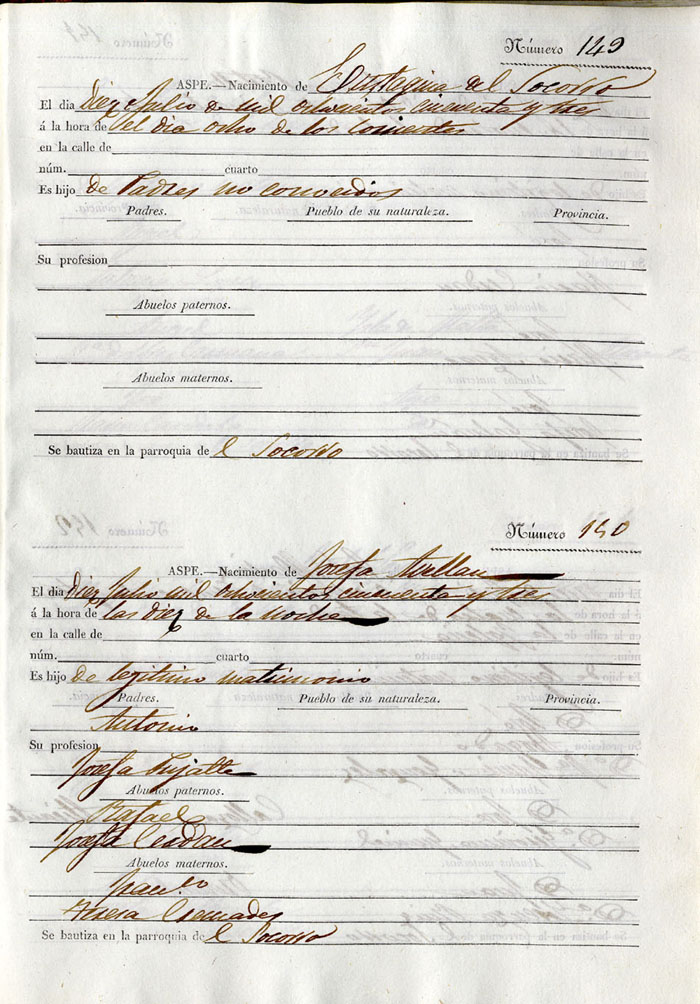 Número 149
ASPE.—Nacimiento de del Socorro
El dia diez Julio de mil ochocientos cincuenta y tres
á la hora de del dia ocho de los corrientes
en la calle de
núm. cuarto
Es hijo de Padres no conocidos
Padres. Pueblo de su naturaleza. Provincia.
Su profesion
Abuelos paternos.
Abuelos maternos.
Se bautiza en la parroquia de l Socorro
Número 150
ASPE.—Nacimiento de Josefa Avellan
El dia diez Julio mil ochocientos cincuenta y tres
á la hora de las diez de la noche
en la calle de
núm. cuarto
Es hijo de legitimo matrimonio
Padres. Pueblo de su naturaleza. Provincia.
Antonio
Su profesion
Josefa Pujalte
Abuelos paternos.
Rafael
Josefa Cerdan
Abuelos maternos.
Fran.co
Teresa Cremades
Se bautiza en la parroquia de l Socorro